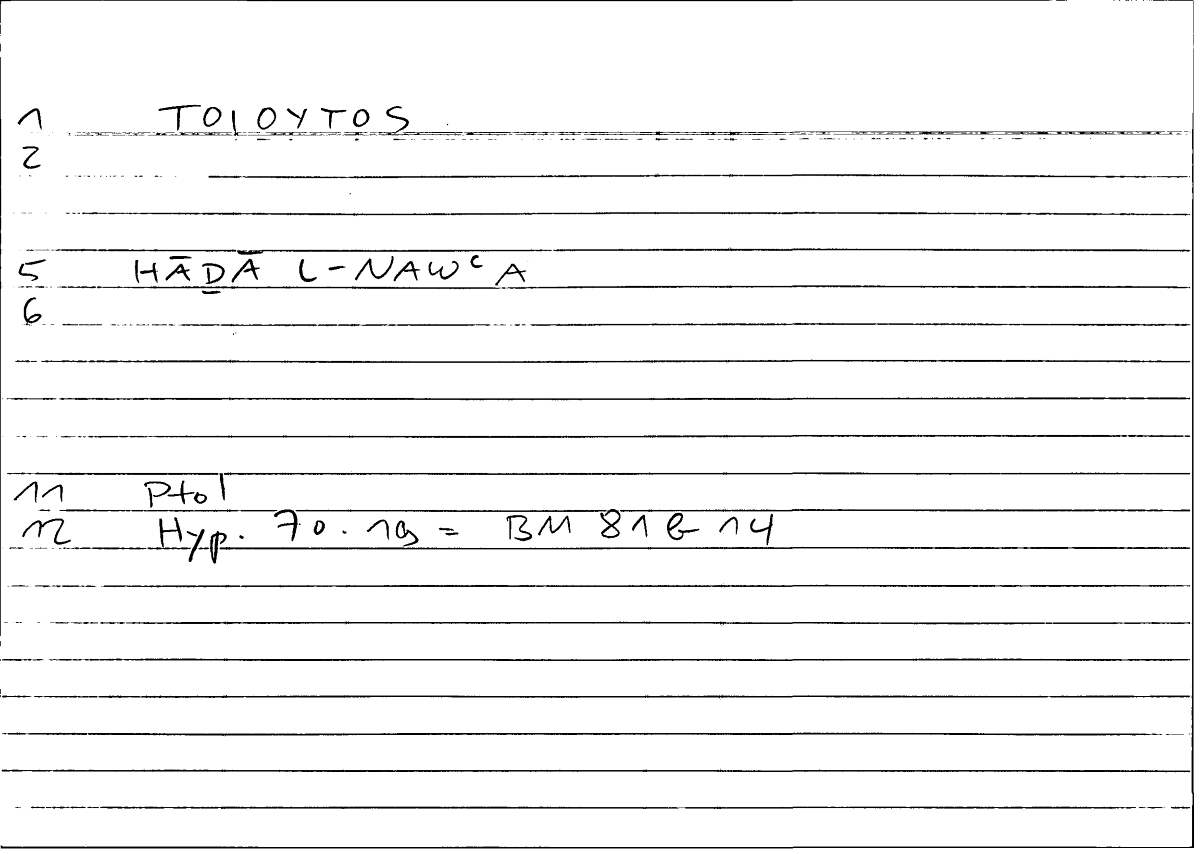 1 TOIOYTOS
2
5 HĀḎĀ L-NAWʿA
6
11 Ptol
12 Hyp. 70.19 = BM 81b14